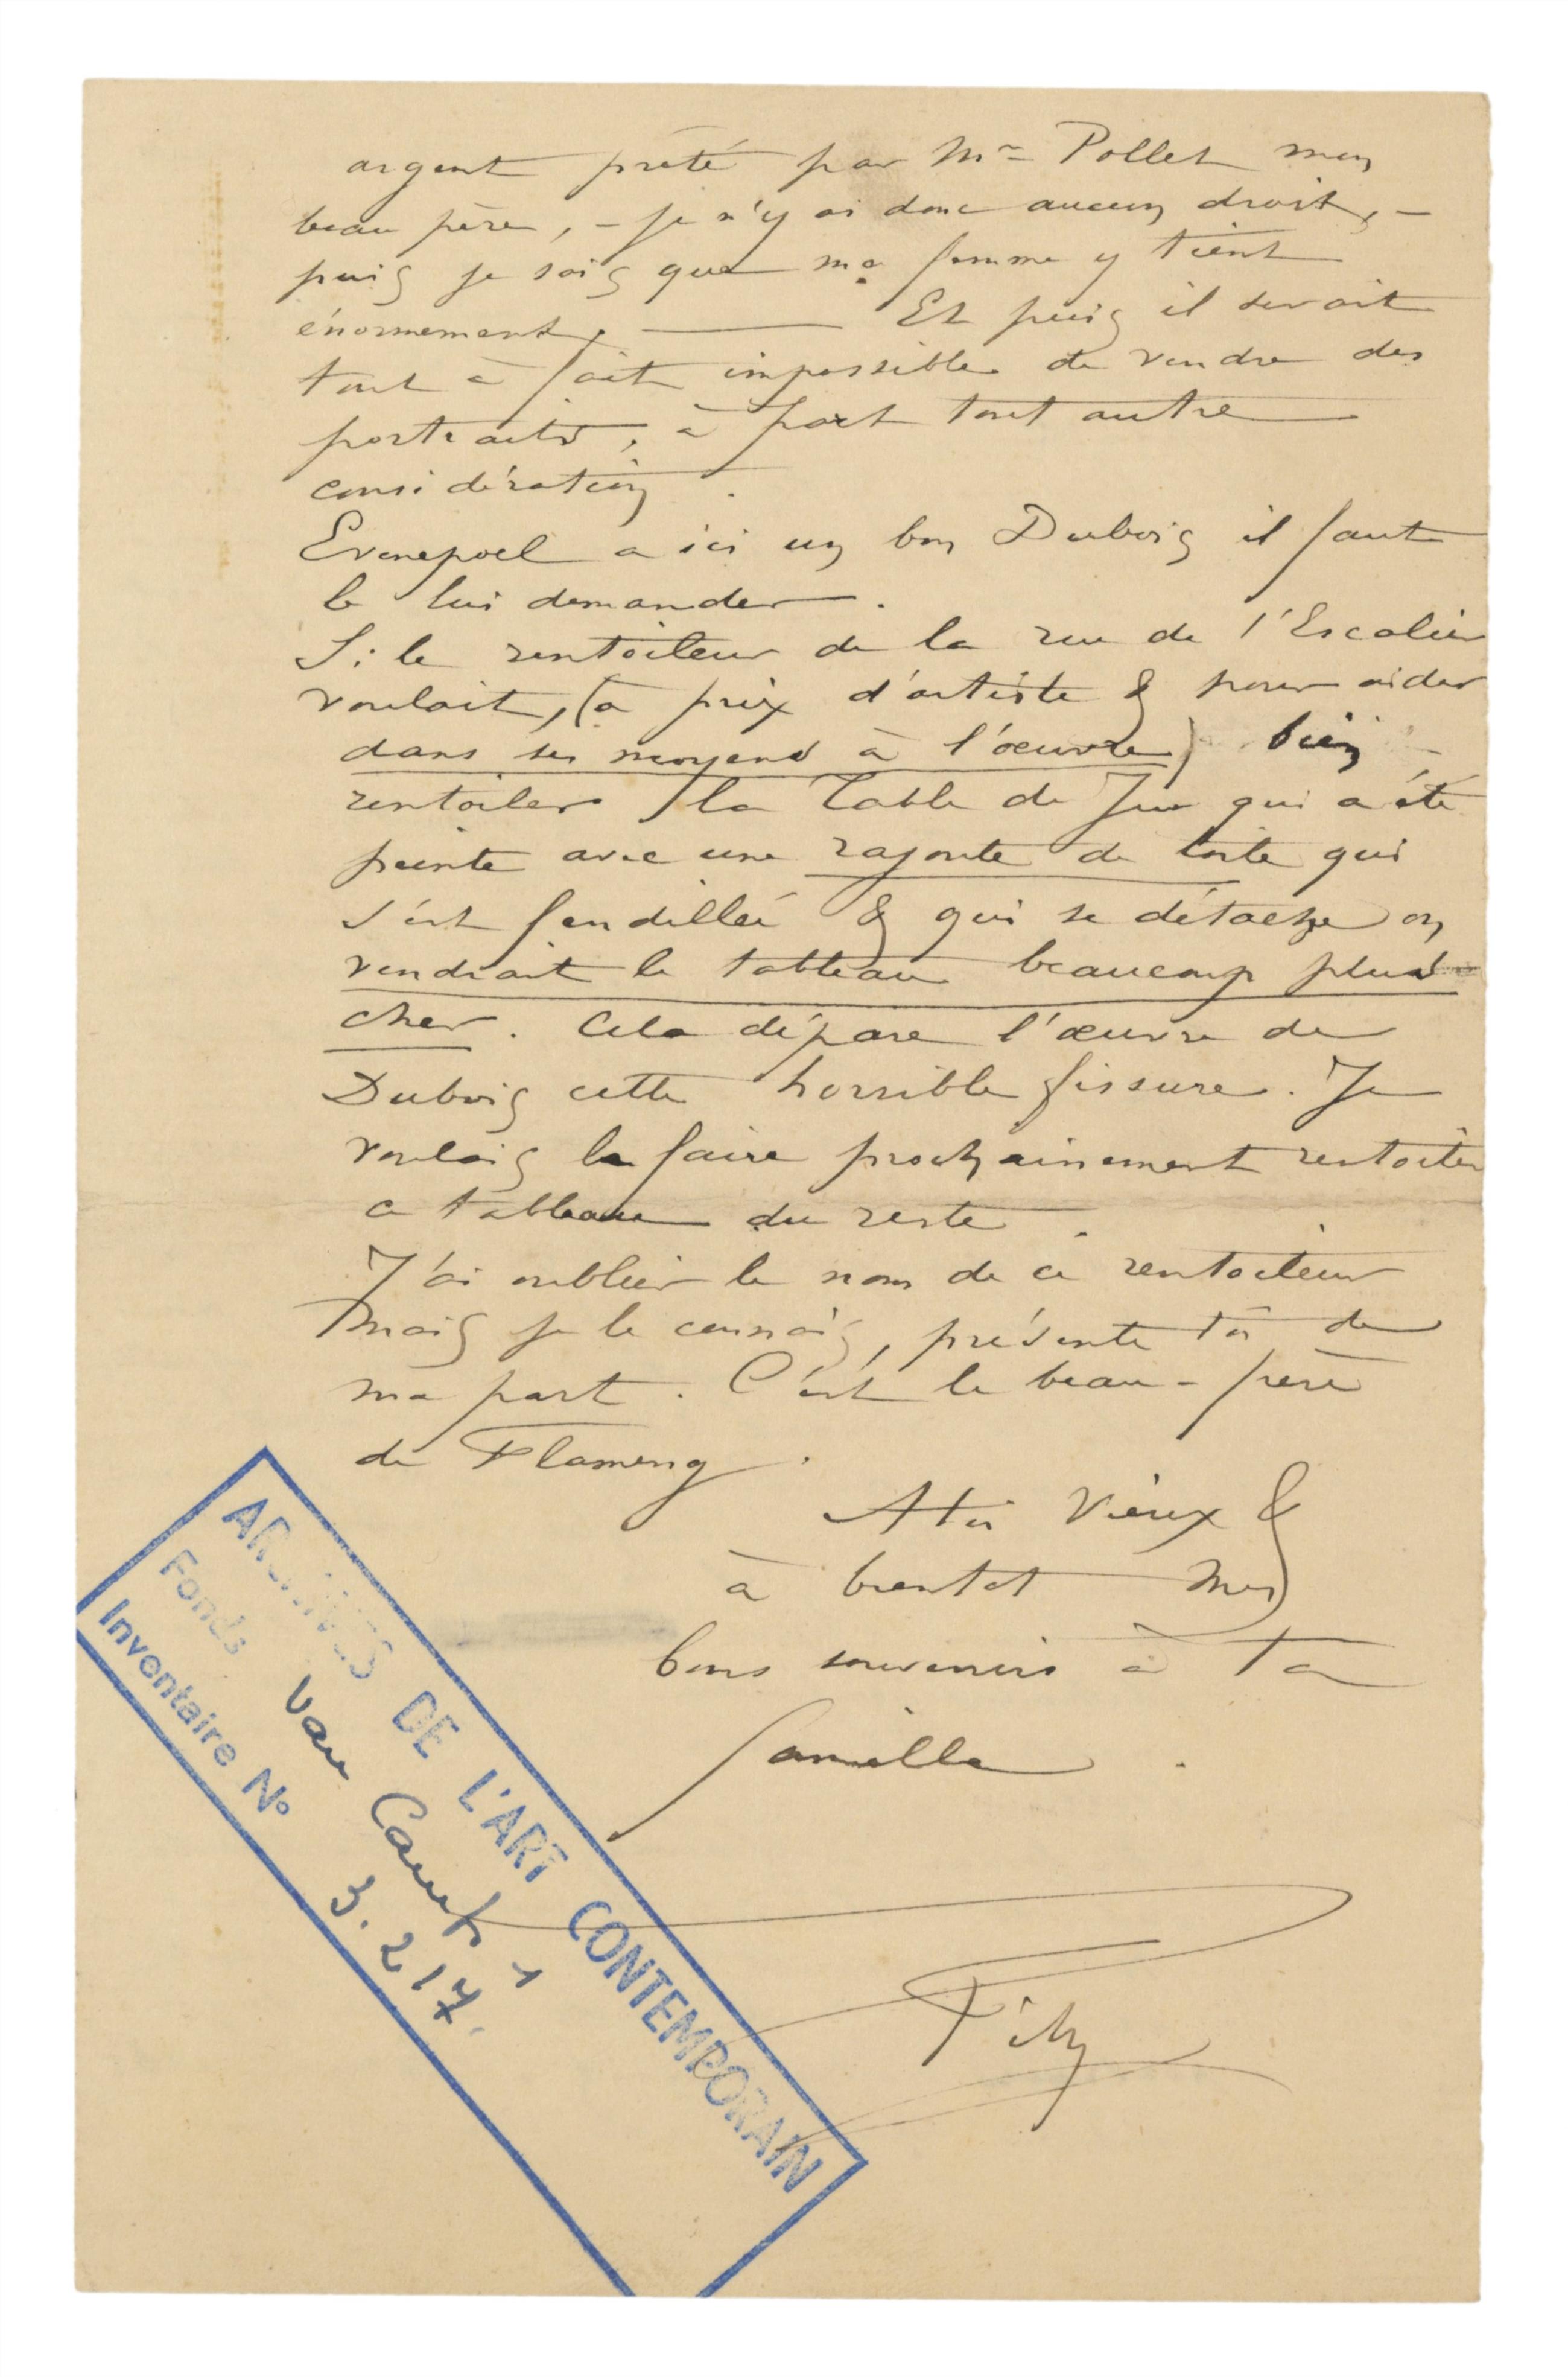 argent prêté par Mr Pollet mon
beau père, – je n'y ai donc aucun droit, –
puis je sais que ma femme y tient
énormement, ——— Et puis il serait
tout à fait impossible de vendre des
portraits, à part tout autre
considération.
Evenepoel a ici un bon Dubois il faut
le lui demander.
Si le rentoileur de la rue de l'Escalier
voulait, (à prix d'artiste & pour aider
dans ses moyens à l'œuvre) bien
rentoiler la Table de Jeu qui a été
peinte avec une rajoute de toile qui
s'est fendillée & qui se détache on
vendrait le tableau beaucoup plus
cher. Cela dépare l'œuvre de
Dubois cette horrible fissure. Je
voulais le faire prochainement rentoiler
ce tableau du reste.
J'ai oublier le nom de ce rentoileur
mais je le connais, présente toi de
ma part. C'est le beau-frère
de Flameng.
A toi Vieux &
à bientot mes
bons souvenirs à ta
famille.
Fitz
ARCHIVES DE L'ART CONTEMPORAIN
Fonds Van Camp 1
Inventaire N° 3.217.